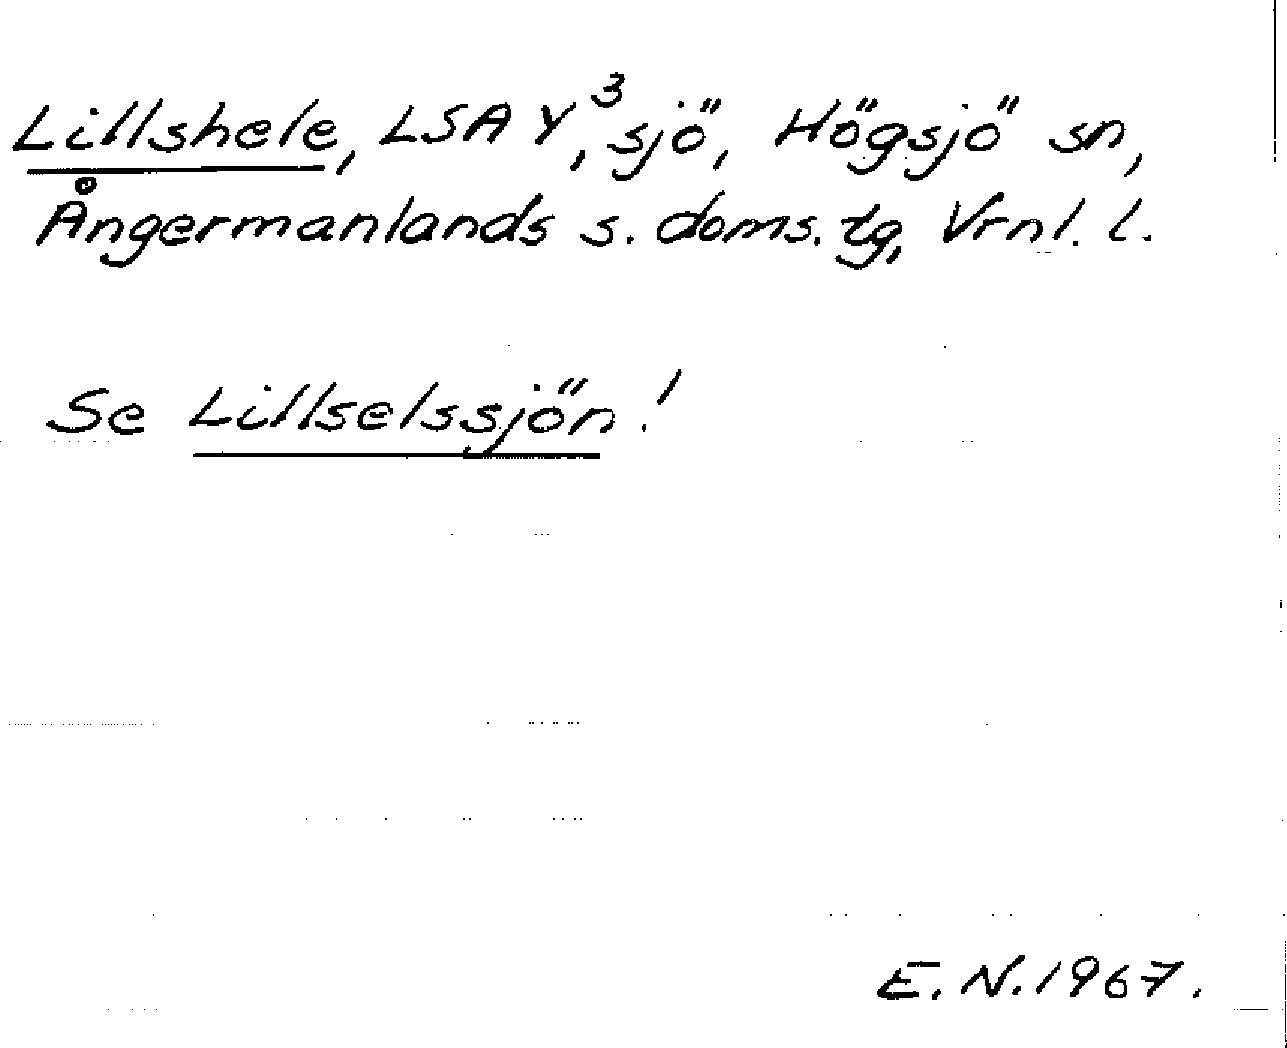 Lillshele, LSA Y³, sjö, Högsjö sn,
Ångermanlands s. doms. tg, Vrnl. l.
Se Lillselssjön!
E. N. 1967.